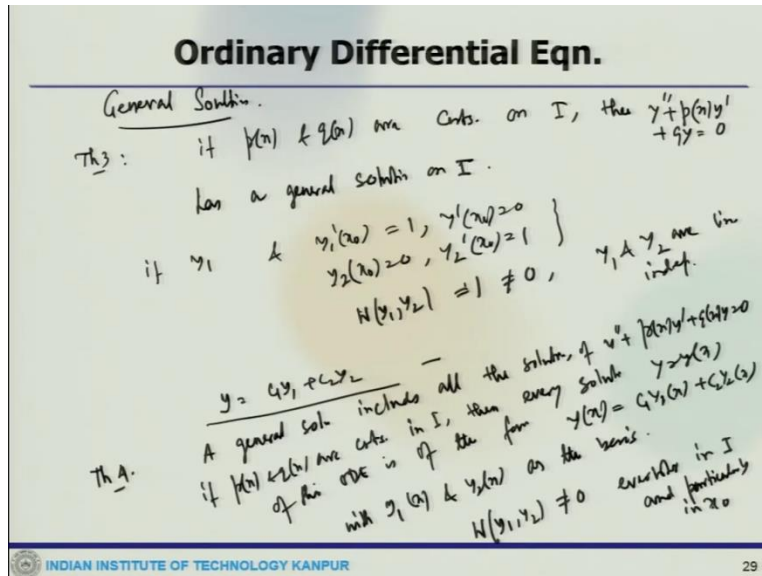 Ordinary Differential Eqn.
General Solution.
Th3: if p(x) & q(x) are conts. on I, then y''+p(x)y'
+qy=0
has a general solution on I.
if y1 & y1'(x0) = 1, y'(x0)=0
y2(x0)=0, y2'(x0)=1 }
W(y1,y2) = 1 ≠ 0, y1 & y2 are lin
indep.
y = c1y1 + c2y2
A general soln includes all the solution, of y''+ p(x)y'+q(x)y=0
Th 4. if p(x) & q(x) are conts. in I, then every solution y=y(x)
of this ODE is of the form y(x) = c1y1(x) + c2y2(x)
with y1(x) & y2(x) as the basis.
W(y1,y2) ≠ 0 everywhere in I
and particularly
in x0
INDIAN INSTITUTE OF TECHNOLOGY KANPUR
29